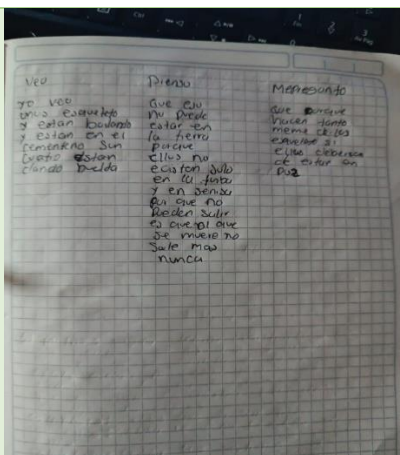 Veo
yo veo
unos esqueleto
y estan bailando
y estan en el
cementerio sun
cuatro estan
dando buelta
Pienso
que eso
no puede
estar en
la tierra
porque
ellos no
ecisten solo
en la
y en
por que no
pueden salir
es que el que
se muere no
sale mas
nunca
Mepregunto
que porque
hacen tanto
meme de los
si
ellos deberian
de estar en
paz